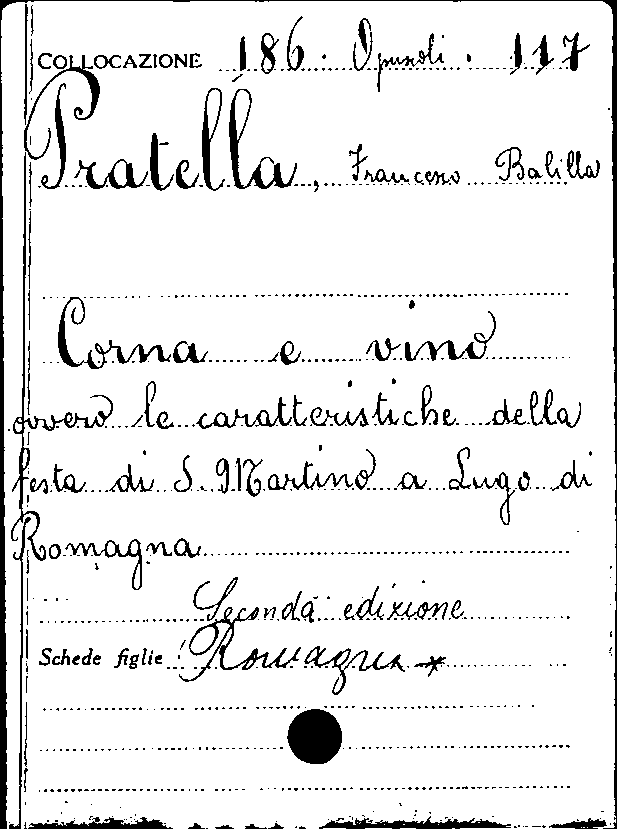 COLLOCAZIONE 186. Opuscoli. 117
Pratella, Francesco Balilla
Corna e vino
ovvero le caratteristiche della
festa di S. Martino a Lugo di
Romagna
Seconda edizione
Schede figlie: Romagna *